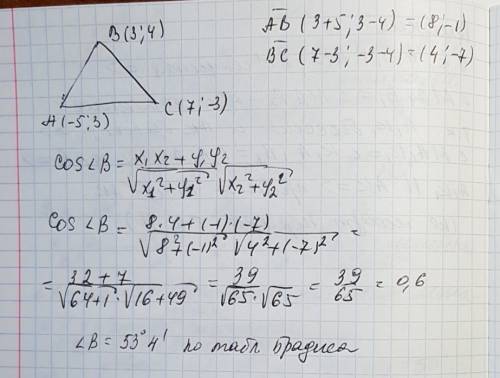 B(3;4)
A(-5;3)
C(7;-3)
AB (3+5; 3-4) = (8;-1)
BC (7-3; -3-4) = (4;-7)
cos∠B = x₁x₂ + y₁y₂ / √x₁²+y₁² √x₂²+y₂²
cos∠B = 8·4+(-1)·(-7) / √8²+(-1)² √4²+(-7)² =
= 32+7 / √64+1·√16+49 = 39 / √65·√65 = 39/65 = 0,6
∠B = 53°4' по табл. Брадиса